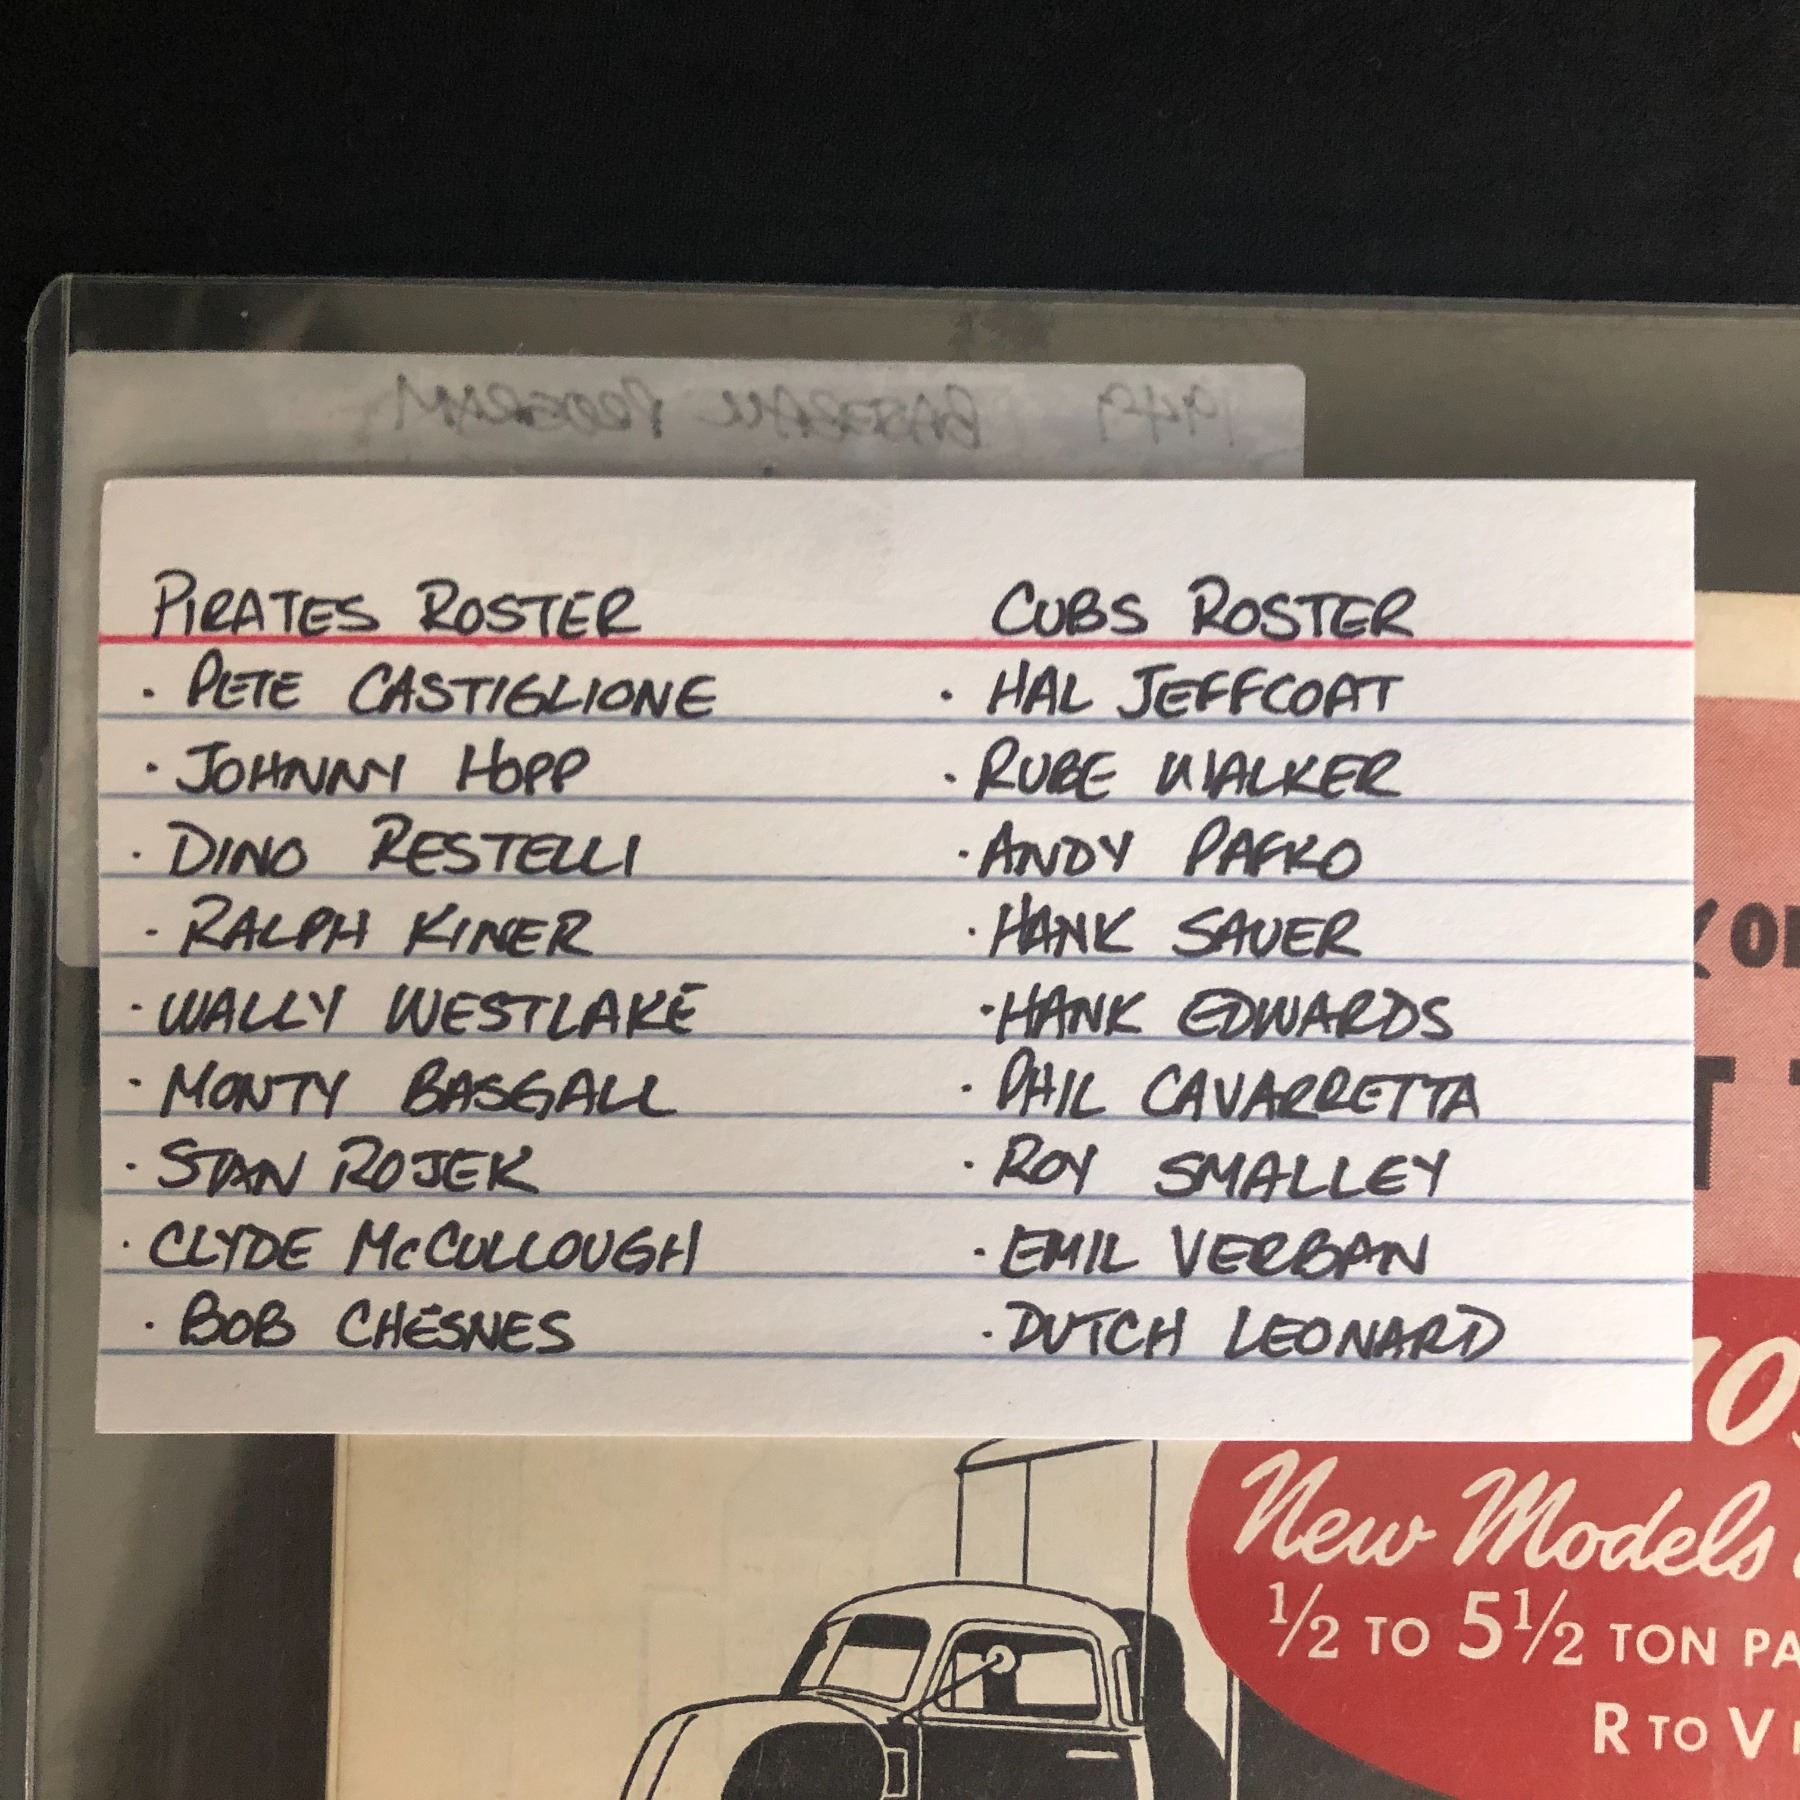 1949 BASEBALL PROGRAM
PIRATES ROSTER
· PETE CASTIGLIONE
· JOHNNY HOPP
· DINO RESTELLI
· RALPH KINER
· WALLY WESTLAKE
· MONTY BASGALL
· STAN ROJEK
· CLYDE McCULLOUGH
· BOB CHESNES
CUBS ROSTER
· HAL JEFFCOAT
· RUBE WALKER
· ANDY PAFKO
· HANK SAUER
· HANK EDWARDS
· PHIL CAVARRETTA
· ROY SMALLEY
· EMIL VERBAN
· DUTCH LEONARD
New Models
1/2 TO 5 1/2 TON PA
R TO V